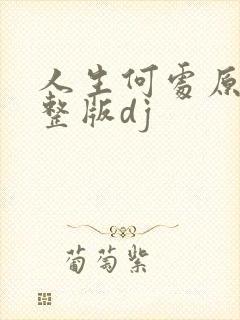 人生何处原
整版dj
葡萄紫